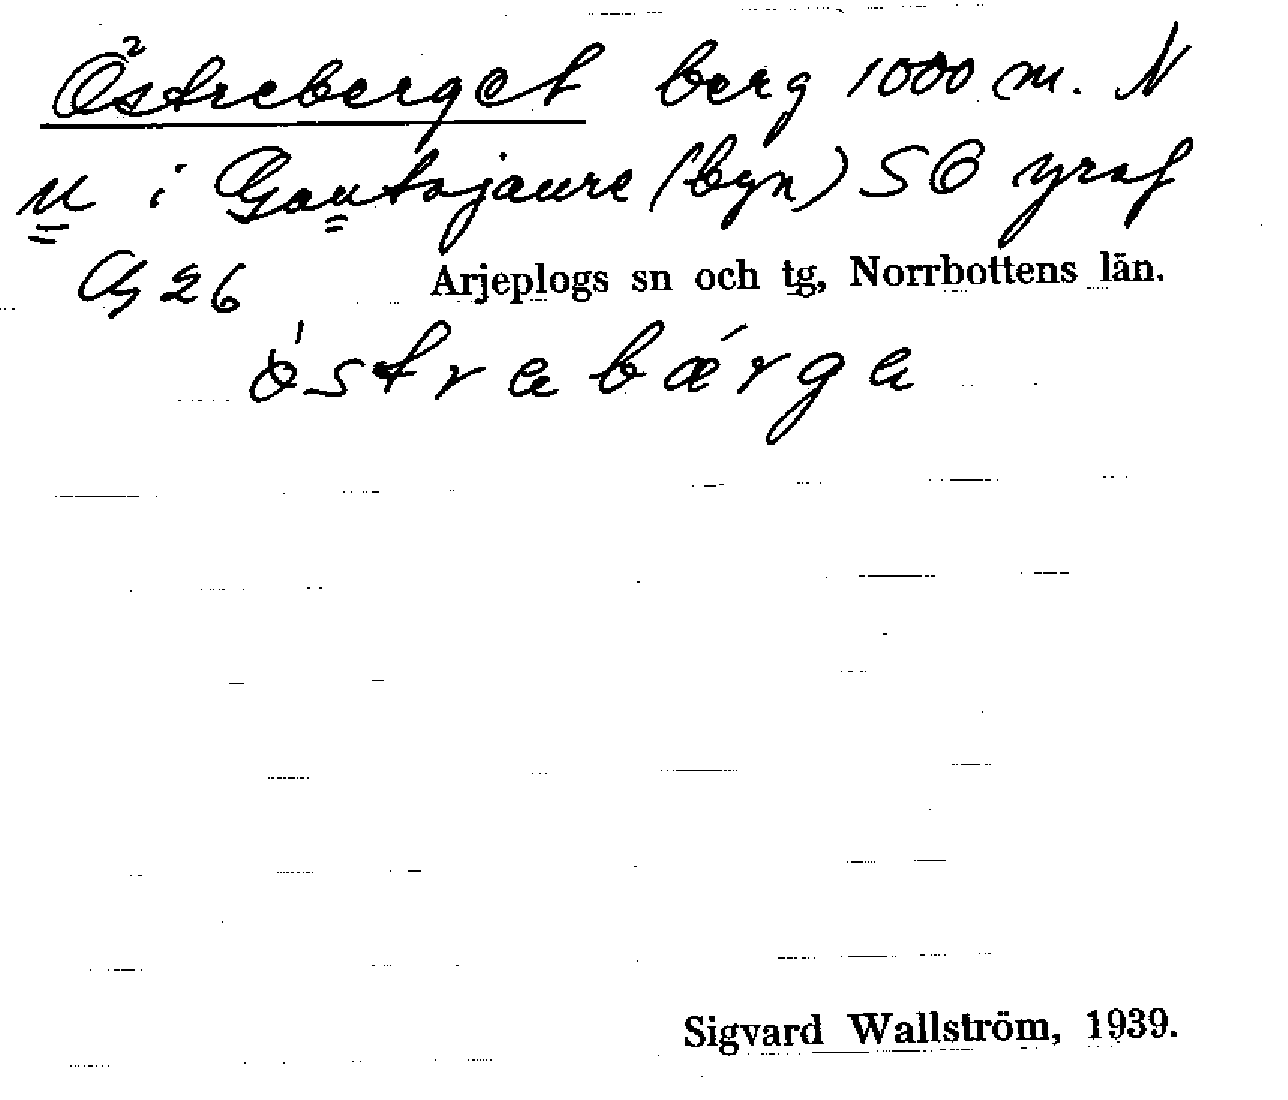 Östreberget berg 1000 m. N
u i Gautojaure (byn) SO
26
Arjeplogs sn och tg, Norrbottens län.
östrabärga
Sigvard Wallström, 1939.